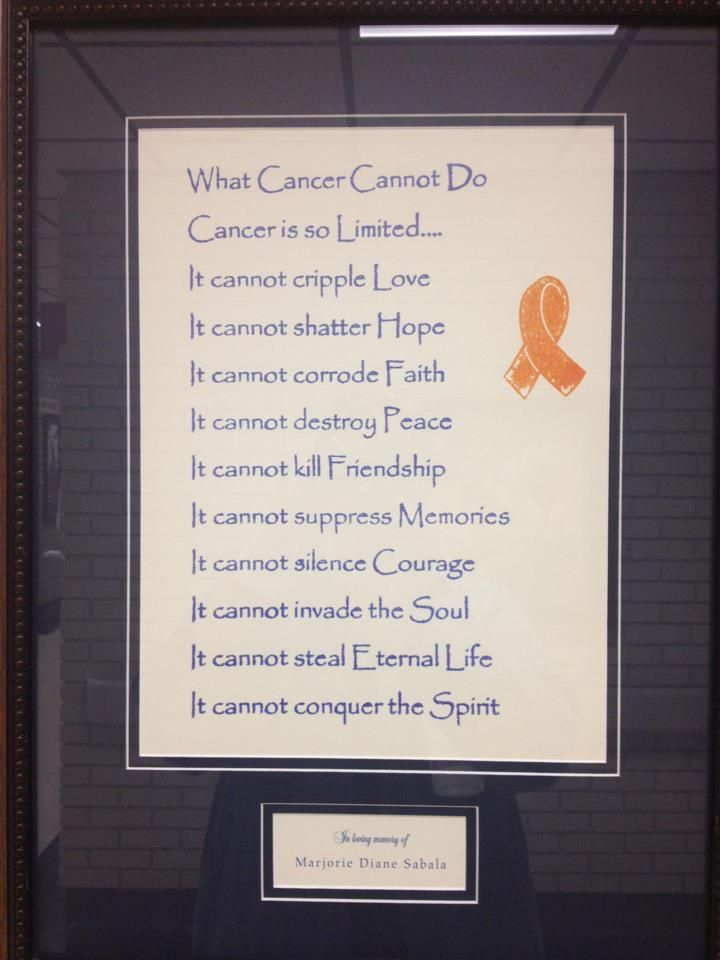 What Cancer Cannot Do
Cancer is so Limited....
It cannot cripple Love
It cannot shatter Hope
It cannot corrode Faith
It cannot destroy Peace
It cannot kill Friendship
It cannot suppress Memories
It cannot silence Courage
It cannot invade the Soul
It cannot steal Eternal Life
It cannot conquer the Spirit
In loving memory of
Marjorie Diane Sabala